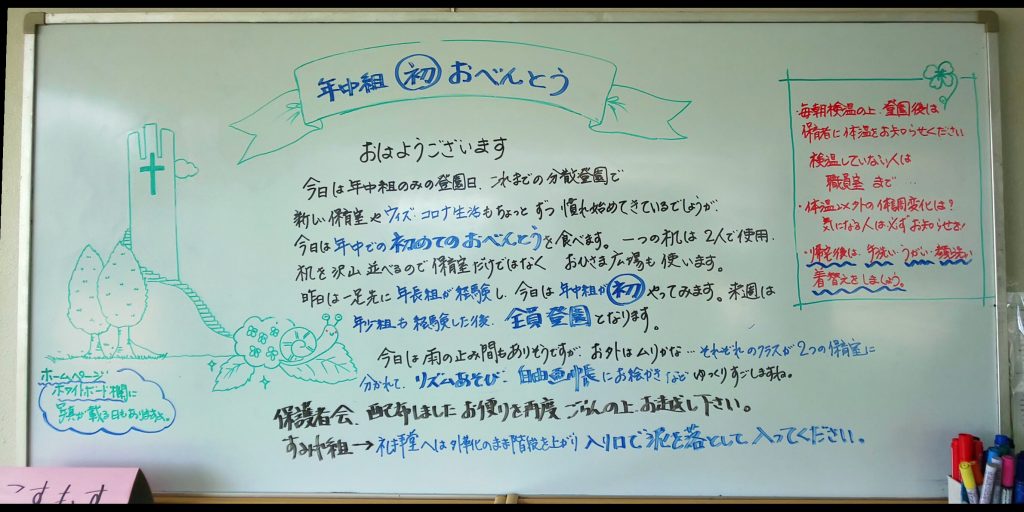 年中組 初 おべんとう
おはようございます
今日は年中組のみの登園日、これまでの分散登園で
新しい保育室やウィズ コロナ生活もちょっとずつ慣れ始めてきているでしょうが、
今日は年中での初めてのおべんとうを食べます。一つの机は2人で使用、
机を沢山並べるので保育室だけではなく おひさま広場も使います。
昨日は一足先に年長組が経験し、今日は年中組が初やってみます。来週は
年少組も経験した後、全員登園となります。
今日は雨の止み間もありそうですが、お外はムリかな…それぞれのクラスが2つの保育室に
分かれて、リズムあそび、自由画帳にお絵かきなどゆっくりすごしますね。
保護者会、配布しましたお便りを再度ごらんの上、お越し下さい。
すみれ組→礼拝堂へは外靴のまま階段を上がり 入り口で泥を落として入ってください。
・毎朝検温の上、登園後は
保育者に体温をお知らせください
検温していない人は
職員室まで…
・体温以外の体調変化は?
気になる人は必ずお知らせを!
・帰宅後は、手洗い うがい 顔洗い
着替えをしましょう。
ホームページ
ホワイトボード欄に
写真が載る日もあります。
こすもす